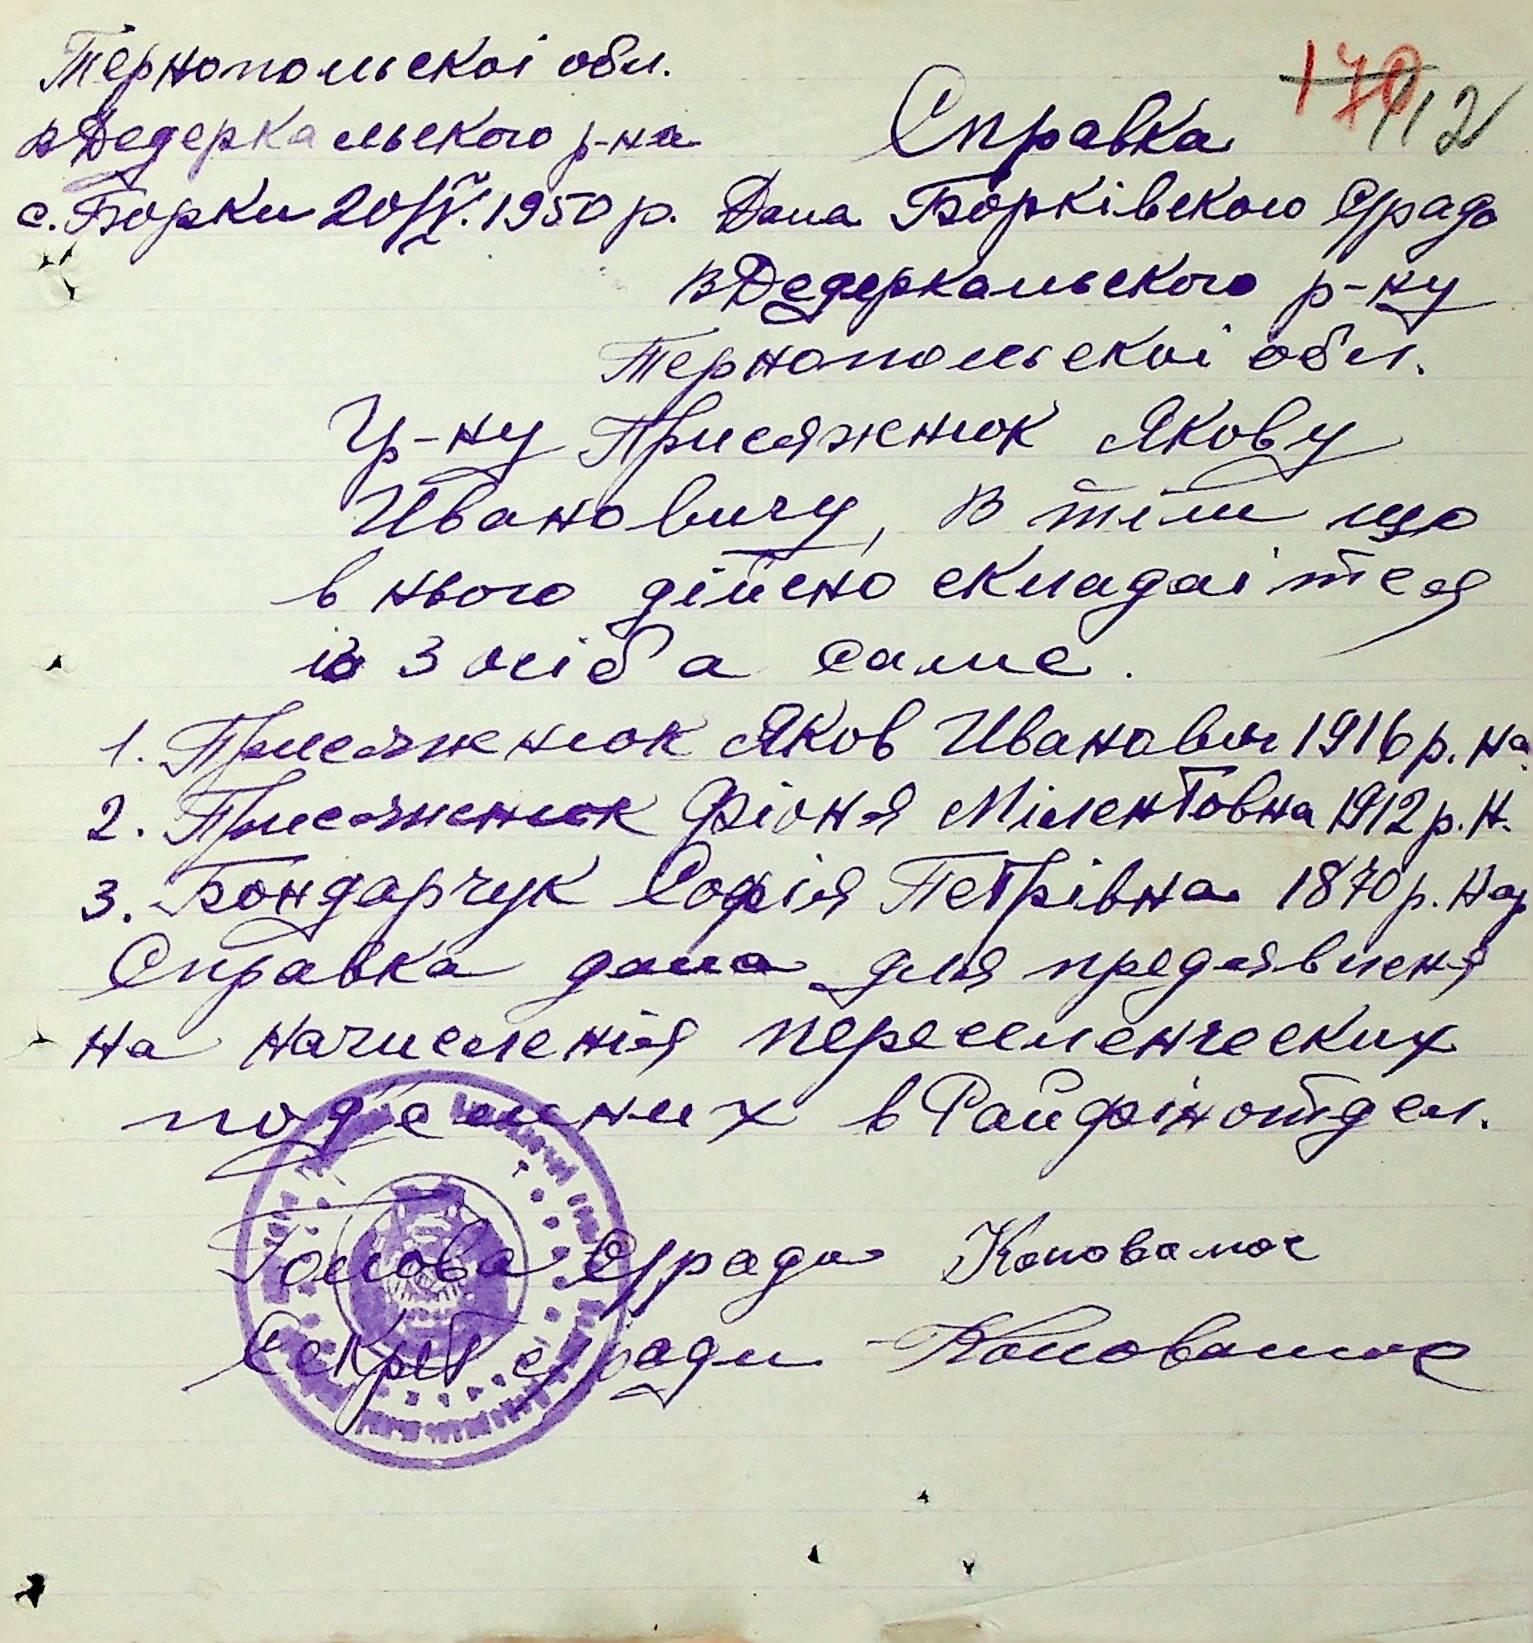 Тернопольскоі обл.
вДедеркальского р-на
с. Борки 20/IV. 1950 р.
112
Справка
Дана Борківского с/радо
вДедеркальского р-ну
Тернопольскоі обл.
Гр-ну Присяжнюк Якову
Ивановичу, в тім що
в нього дійсно складаітся
із 3 осіб а саме.
1. Присяжнюк Яков Иванович 1916 р. на.
2. Присяжнюк Фіоня Мілентовна 1912 р. н.
3. Бондарчук Софія Петрівна 1870 р. нар
Справка дана для предявленя
на начисленія переселенческих
подемних в Райфінотдел.
Голова с/ради
Секрет с/ради